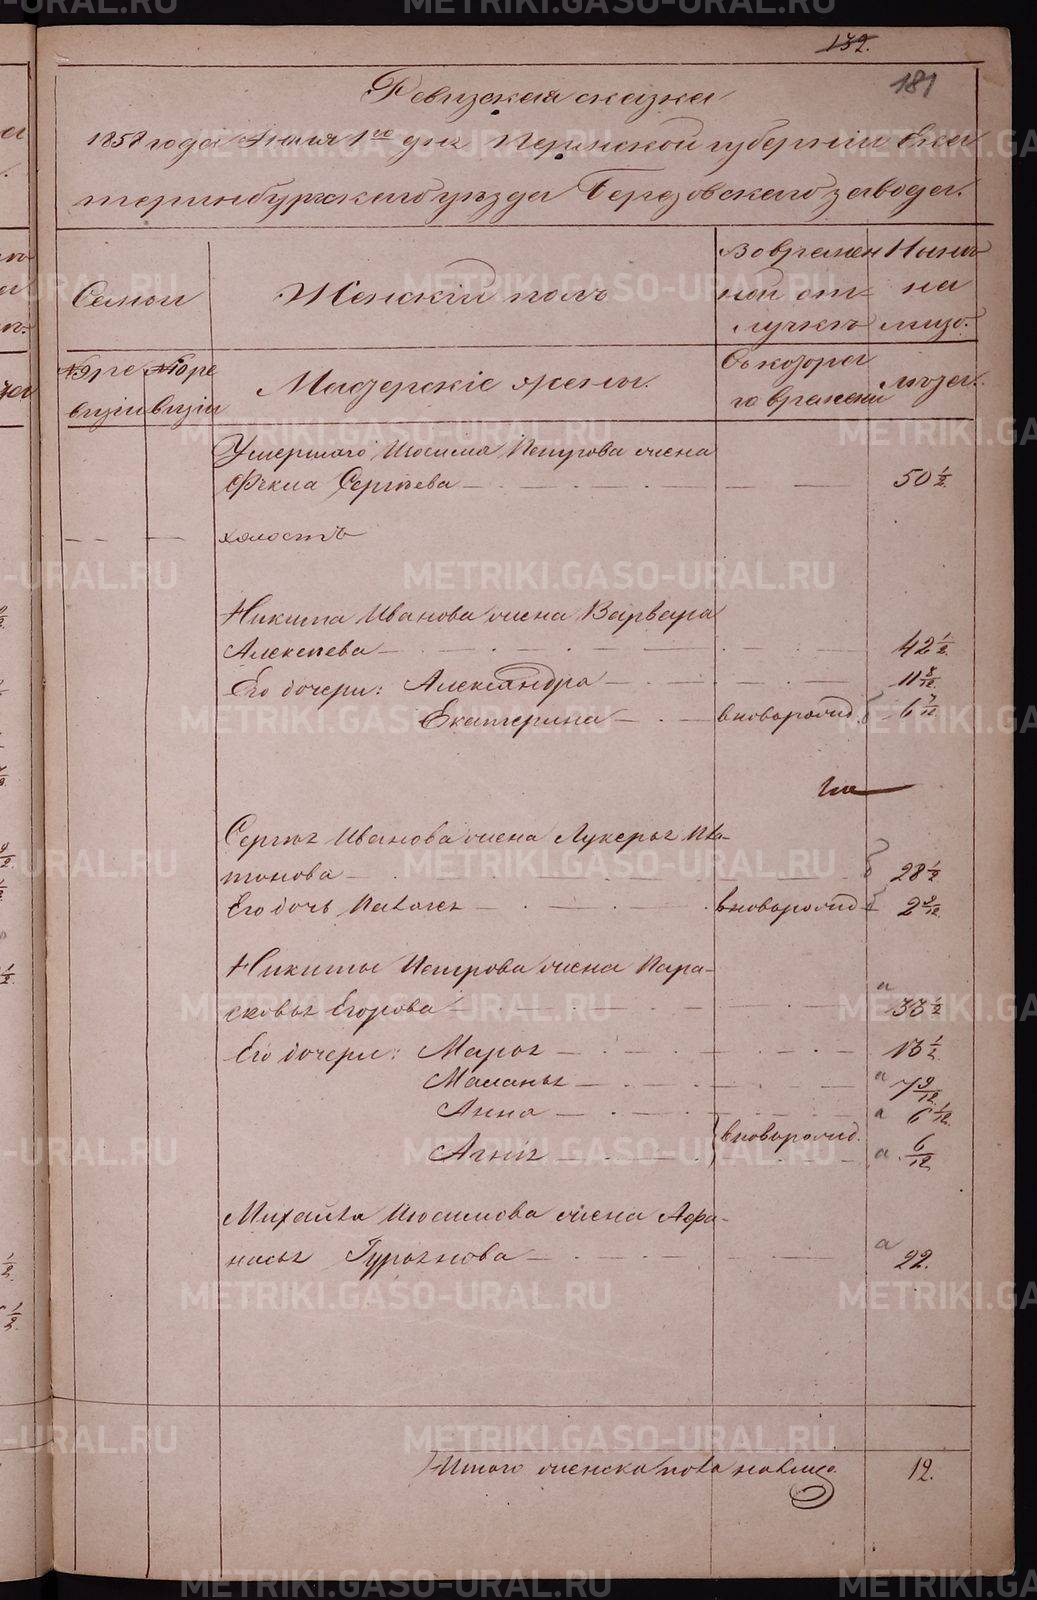 132.
181
Ревизская сказка
1858 года Июня 1го дня Пермской губернии Ека
теринбургскаго уѣзда Березовскаго завода.
Семьи
Женскій полъ
Во времен
ной от-
лучкѣ
Нынѣ
на
лицо.
№ 9 ре
визіи
№ 10 ре
визіи
Мастерскіе жены.
Съ котора
го времени
лѣта.
Умершаго Изосима Петрова жена
Фекла Сергѣева 50 1/2
холостъ
Никита Иванова жена Варвара
Алексѣева 42 1/2
Его дочери: Александра 11 8/12
Екатерина вноворожд. 6 7/12
Сергѣя Иванова жена Лукерья Пла-
тонова 28 1/2
Его дочь Палагея вноворожд 2 9/12.
Никиты Петрова жена Пара-
сковья Егорова 33 1/2
Его дочери: Марья 13 1/2
Маланья 7 9/12
Анна 6 1/12.
вноворожд.
Агнія 6/12
Михайла Изосимова жена Афа-
насья Гурьянова 22.
Итого женска пола налицо. 12.
METRIKI.GASO-URAL.RU